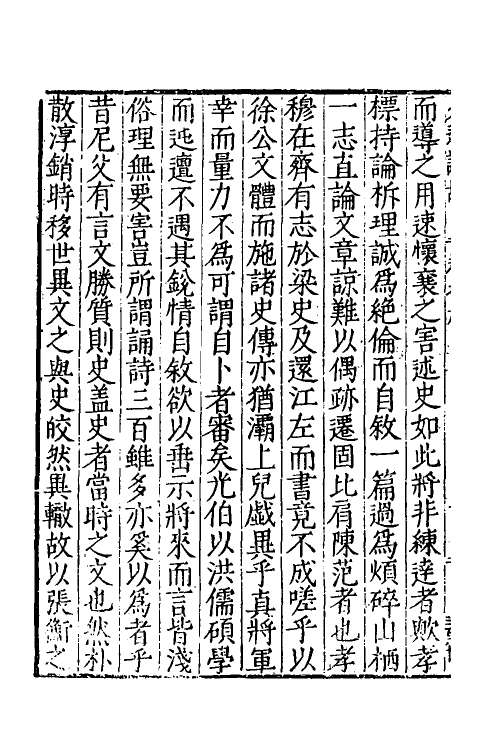 而導之用速懷襄之害述史如此將非練達者歟孝
標持論析理誠爲絶倫而自敘一篇過爲煩碎山栖
一志直論文章諒難以偶跡遷固比肩陳范者也孝
穆在齊有志於梁史及還江左而書竟不成嗟乎以
徐公文體而施諸史傳亦猶灞上兒戲異乎真將軍
幸而量力不爲可謂自卜者審矣光伯以洪儒碩學
而迍邅不遇其銳情自敘欲以垂示將來而言皆淺
俗理無要害豈所謂誦詩三百雖多亦奚以爲者乎
昔尼父有言文勝質則史盖史者當時之文也然朴
散淳銷時移世異文之與史皎然異轍故以張衡之